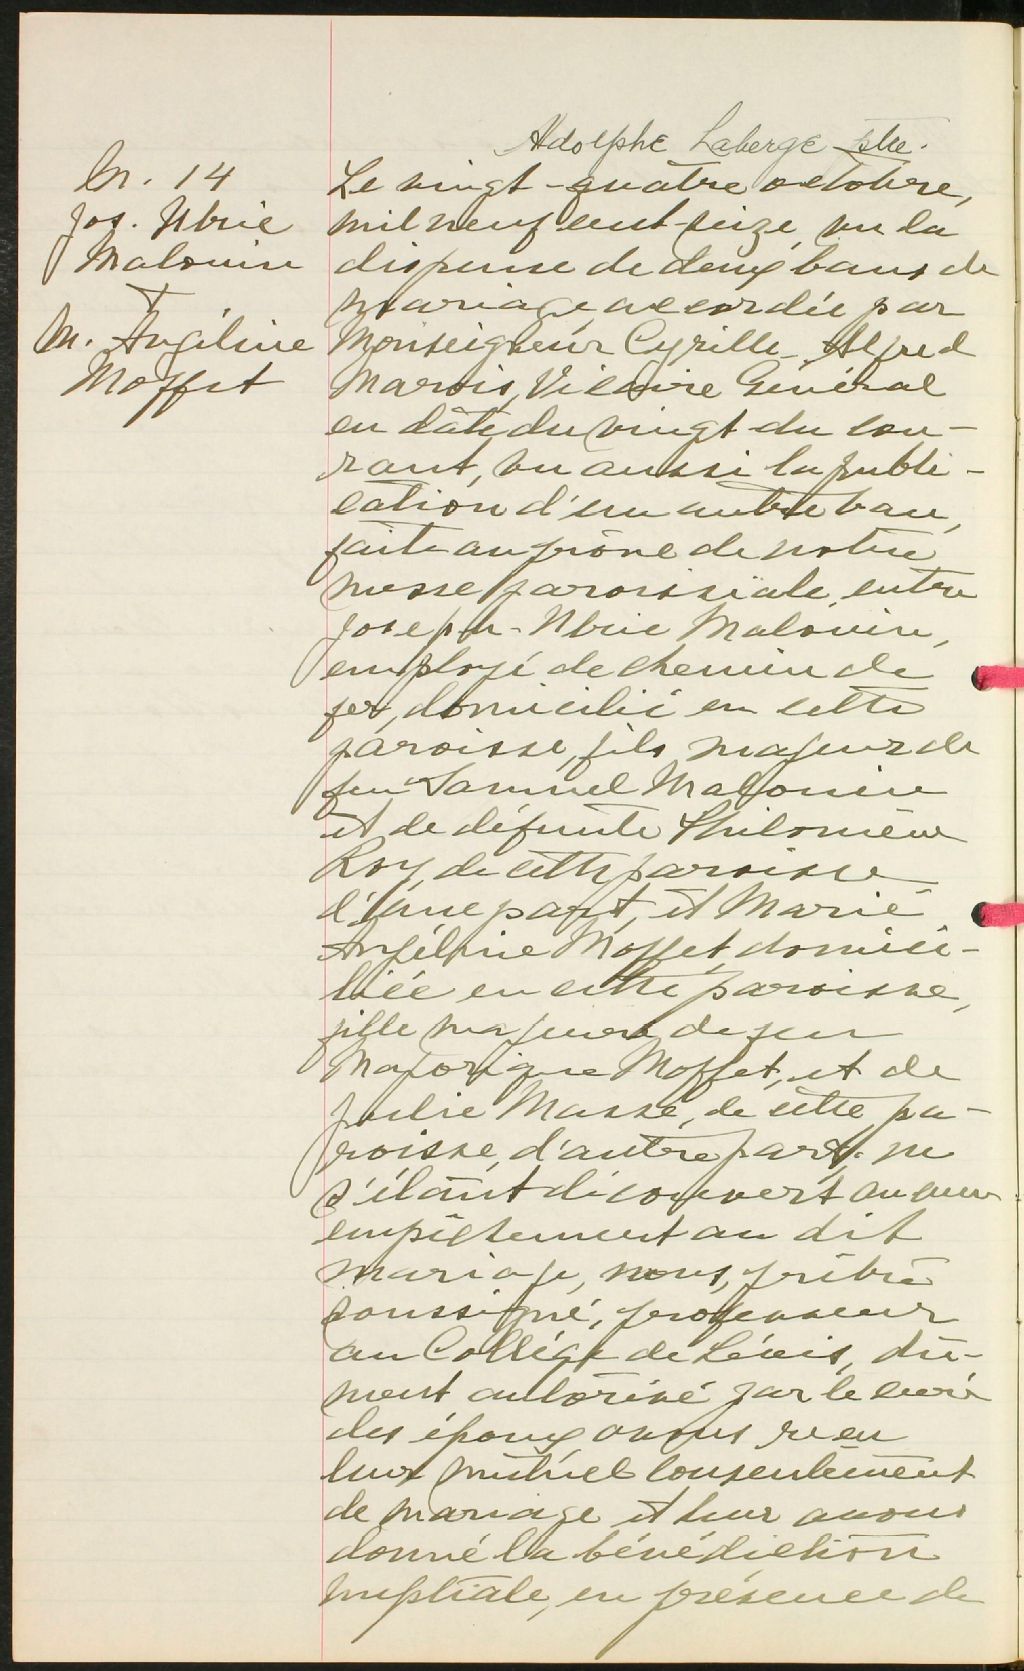 Adolphe Laberge ptre.
M. 14
Jos. Ubric
Malouin
&
M. Angéline
Moffet
Le vingt-quatre octobre,
mil neuf cent seize, vu la
dispense de deux bans de
mariage accordée par
Monseigneur Cyrille-Alfred
Marois, Vicaire Général
en date du vingt du cou-
rant, vu aussi la publi-
cation d'un autre ban,
faite au prône de notre
messe paroissiale, entre
Joseph-Ubric Malouin,
employé de chemin de
fer, domicilié en cette
paroisse, fils majeur de
feu Samuel Malouin
et de défunte Philomène
Roy, de cette paroisse
d'une part, et Marie
Angéline Moffet, domici-
liée en cette paroisse,
fille majeure de feu
Majorique Moffet, et de
Julie Massé, de cette pa-
roisse, d'autre part; ne
s'étant découvert aucun
empêchement au dit
mariage, nous, prêtre
soussigné, professeur
au Collège de Lévis, dû-
ment autorisé par le curé
des époux avons reçu
leur mutuel consentement
de mariage et leur avons
donné la bénédiction
nuptiale, en présence de